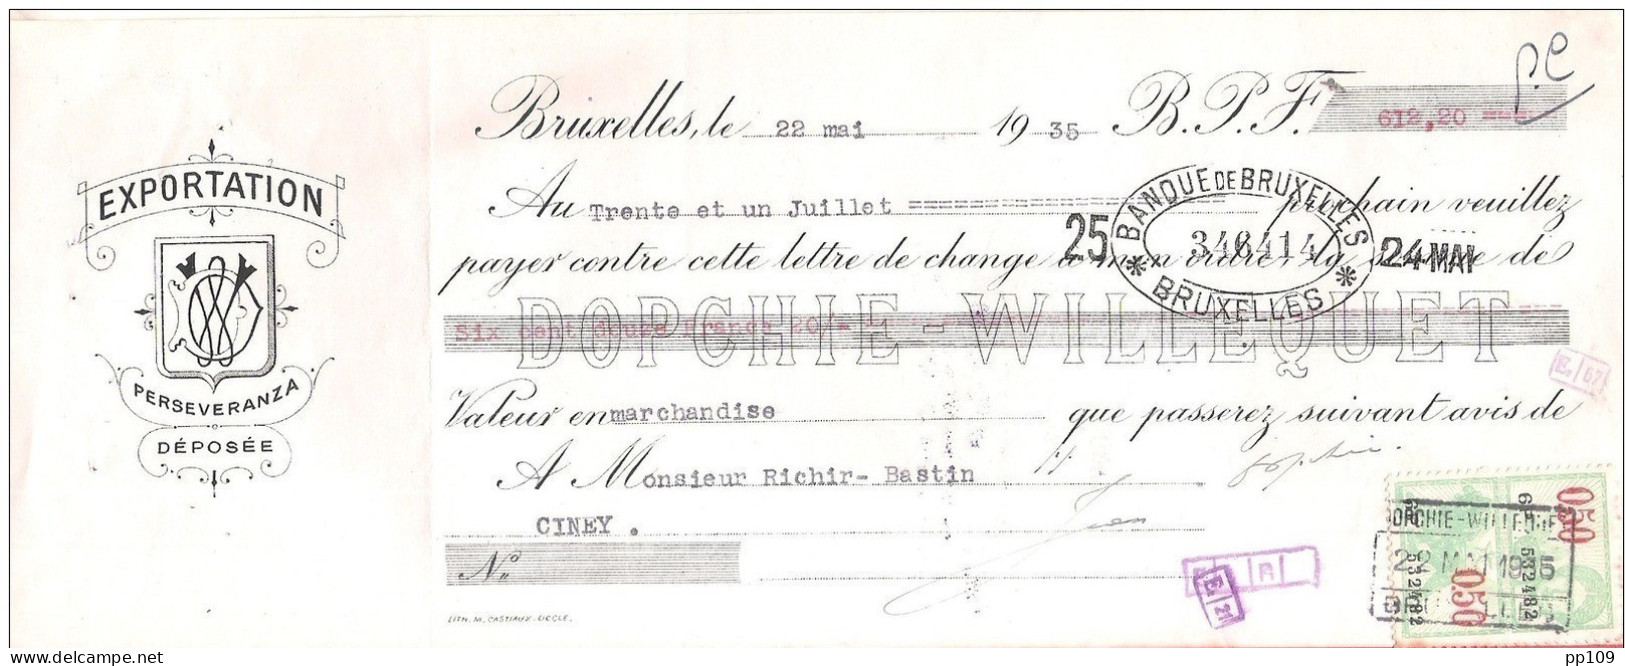 EXPORTATION
PERSEVERANZA
DÉPOSÉE
Bruxelles, le 22 mai 1935 B.P.F. 612,20 ===
Au Trente et un Juillet ================== prochain veuillez
payer contre cette lettre de change à mon ordre, la somme de
Six cent douze Francs 20/-
DOPCHIE-WILLEQUET
Valeur en marchandise que passerez suivant avis de
A Monsieur Richir- Bastin
CINEY.
No.
LITH. M. CASTIAUX. UCCLE.
BANQUE DE BRUXELLES
25 346414 24 MAI
* BRUXELLES *
E. 67
E. 21
0.50
DOPCHIE-WILLEQUET
22 MAI 1935
BRUXELLES
532482
0.50
pp109